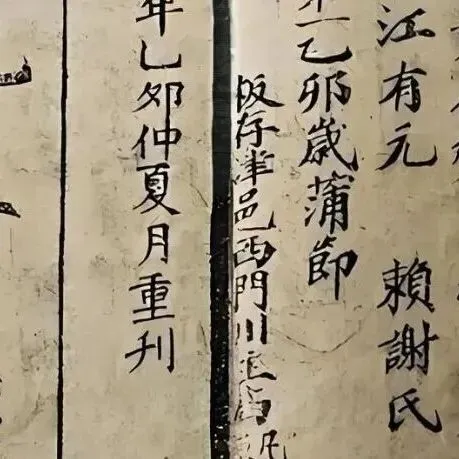 江有元 賴謝氏
乙卯歲蒲節
板存津邑西門川主宮
年乙卯仲夏月重刊